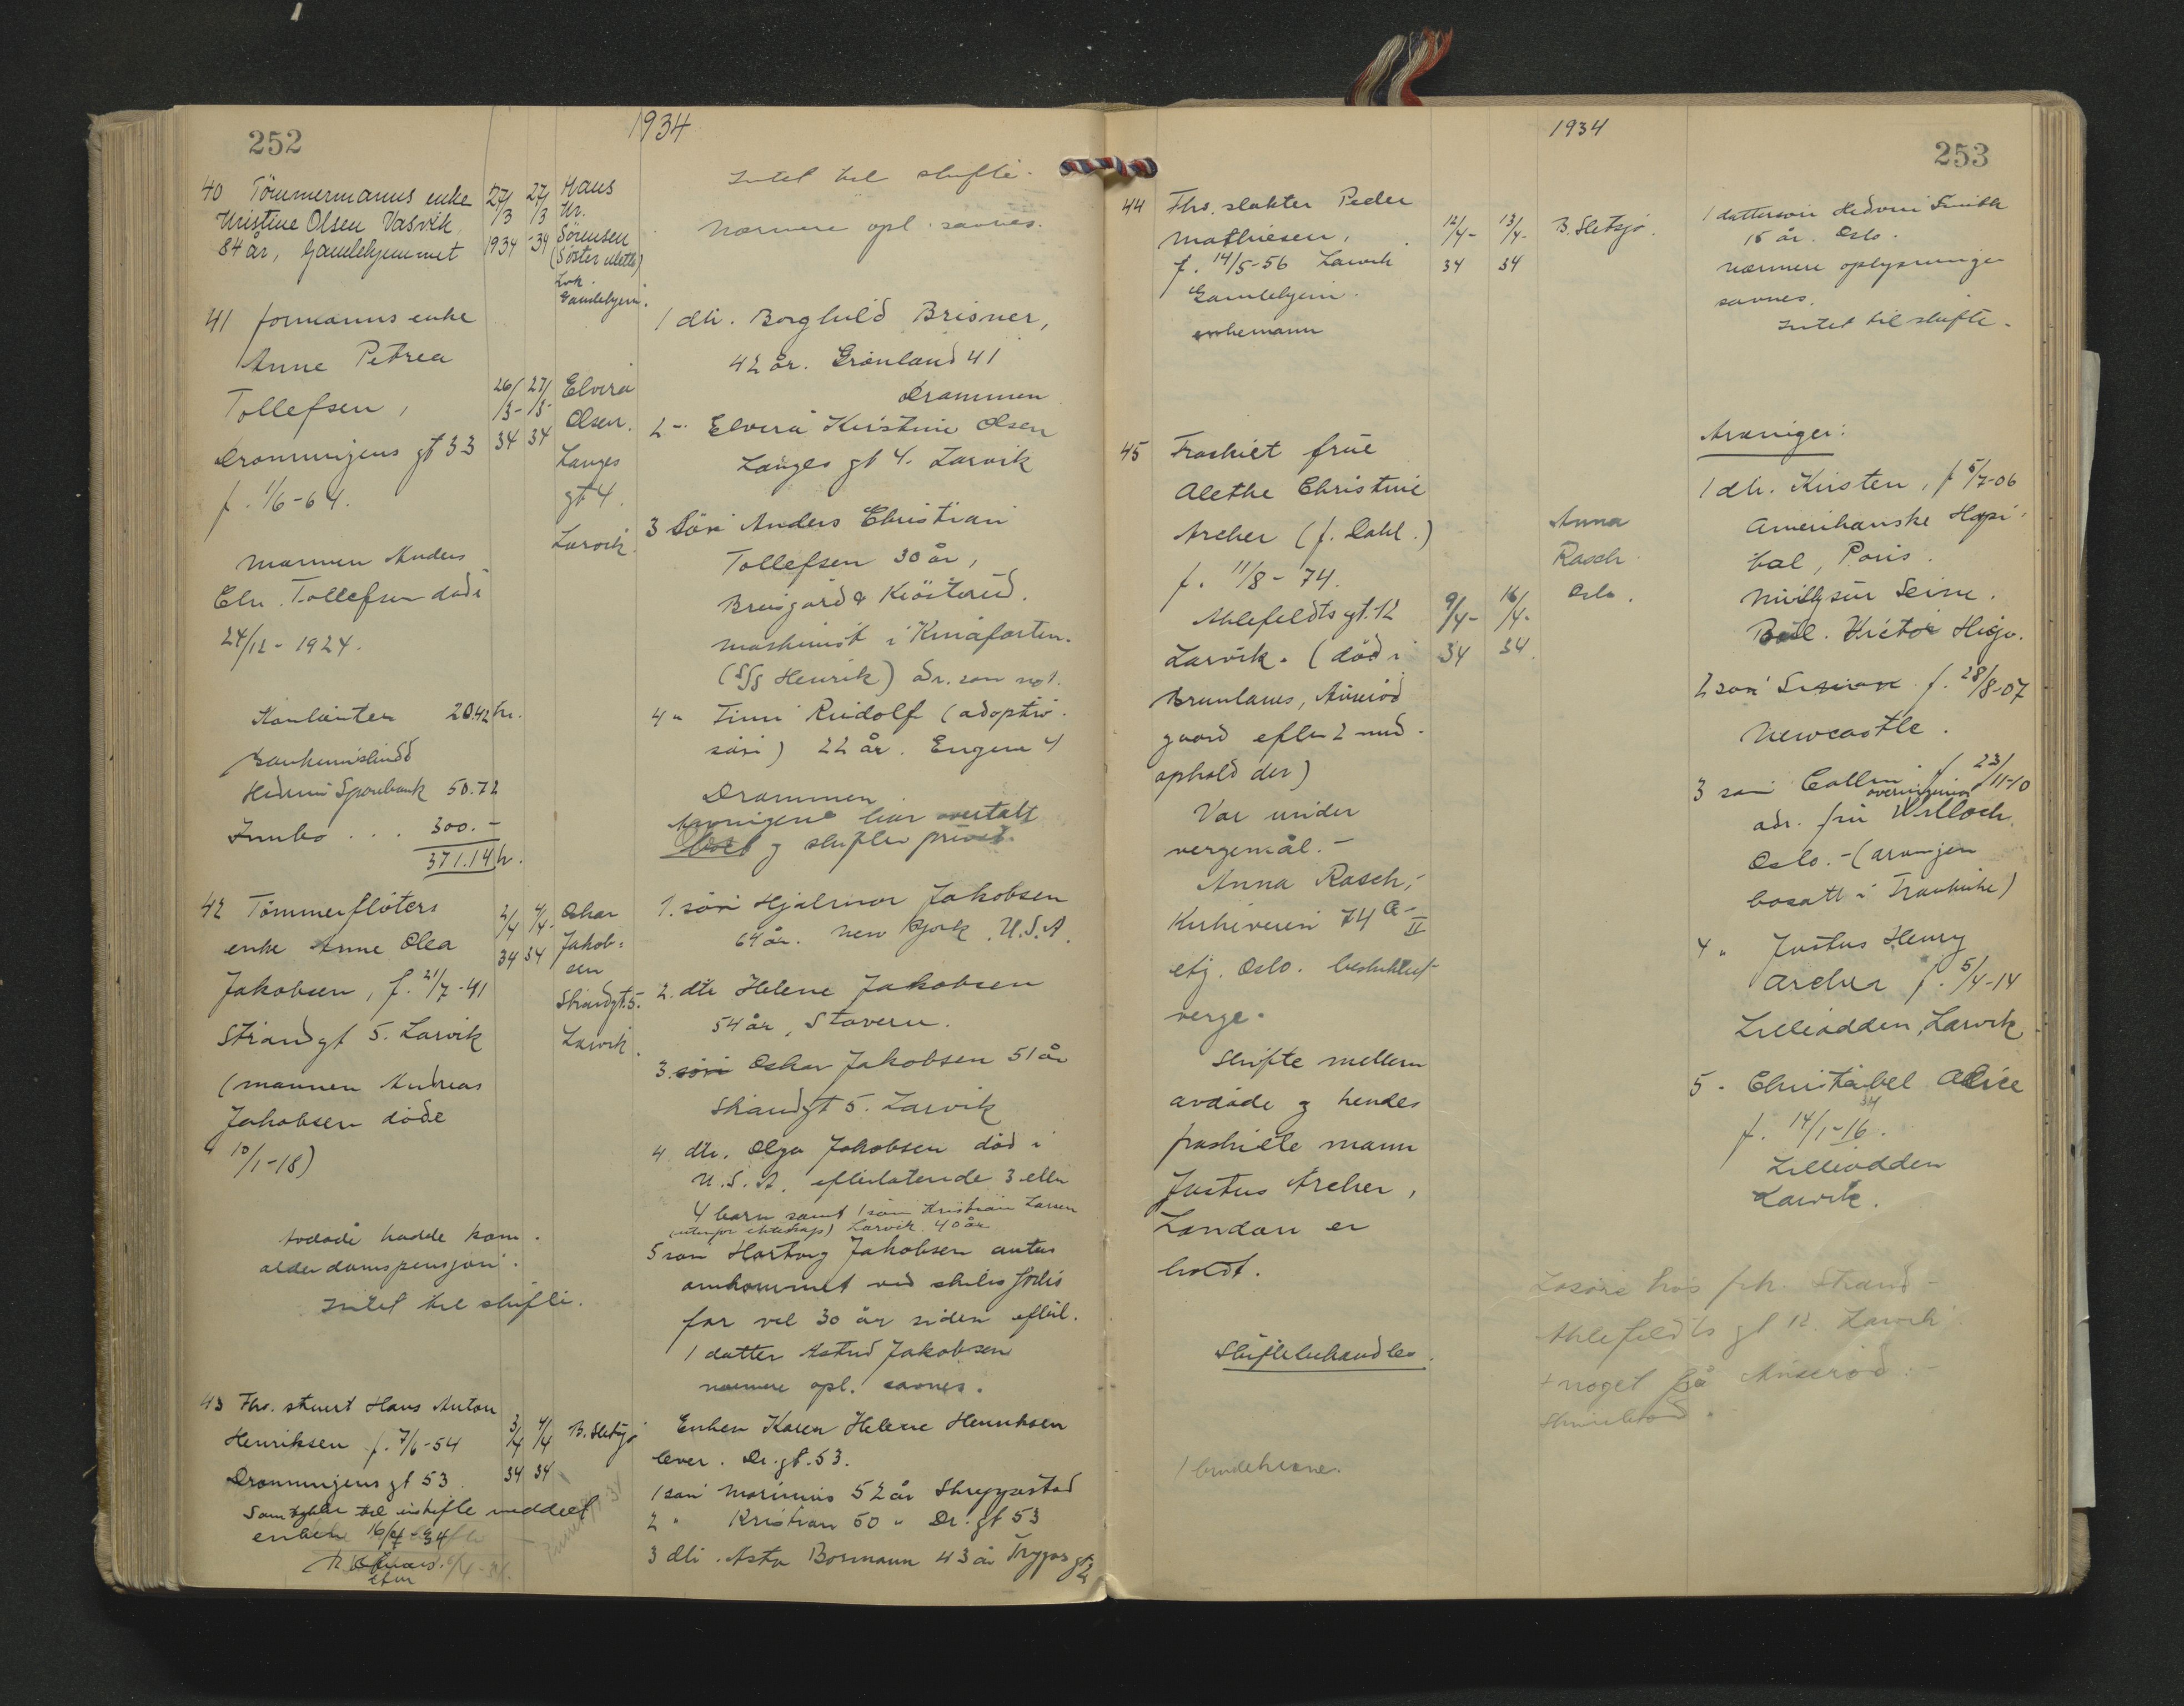 252
1934
40 Tömmermanns enke
Kristine Olsen Vasvik
84 år, Gamlehjemmet
27/3 1934
27/3 -34
Haus
Kr.
Sörensen
(Söster Mette)
Lvk.
Gamlehjem.
Intet til skifte.
Nærmere opl. savnes.
41 formanns enke
Anne Petrea
Tollefsen,
Dronningens gt 33
f. 1/6-64.
Mannen Anders
Chr. Tollefsen døde
24/12-1924.
26/3-34
27/3-34
Elvira
Olsen.
Langes
gt 4.
Larvik.
Kontanter 20.42 kr.
Bankinnskudd
Hedrum Sparebank 50.72
Innbo . . . 300.-
371.14 kr.
1 dtr. Borghild Brisner,
42 år. Grønland 41
Drammen
2 - Elvira Kristine Olsen
Langes gt 4. Larvik
3 Sön Anders Christian
Tollefsen 30 år,
maskinist i Kinafarten.
(S/S Henrik) adr. som no 1.
4 " Finn Rudolf (adoptiv-
sön) 22 år. Engene 4
Drammen
Arvingene har overtatt
boet og skifter privat.
42 Tömmerflöters
enke Anne Olea
Jakobsen, f. 21/7-41
Strandgt 5. Larvik
(mannen Andreas
Jakobsen döde
10/1-18)
2/4 34
4/4- 34
Oskar
Jakob-
sen
Strandgt. 5.
Larvik.
Avdöde hadde kom.
alderdomspensjon.
Intet til skifte.
1. sön Hjalmar Jakobsen
64 år. New York. U.S.A.
2. dtr Helene Jakobsen
54 år, Stavern.
3. sön Oskar Jakobsen 51 år
Strandgt 5. Larvik
4 dtr. Olga Jakobsen död i
U.S.A. efterlatende 3 eller
4 barn samt 1 sön Kristian Larsen
(utenfor ekteskap) Larvik 40 år
5 sön Hartvig Jakobsen antas
omkommet ved skibs forlis
for vel 30 år siden efterl.
1 datter Astrid Jakobsen
nærmere opl. savnes.
43 Fhv. stuert Hans Anton
Henriksen f. 7/6-54
Dronningens gt 53
3/4 34
4/4 34
B. Sletsjö
Samtykke til uskifte meddelt
enken 16/4-34
Enken Karen Helene Henriksen
lever. Dr. gt. 53.
1 sön Marinius 52 år Skreppestad
2 " Kristian 50 " Dr. gt 53
3 dtr. Asta Bormann 43 år Trygves gt 2
1934
253
44 Fhv. slakter Peder
Mathiesen,
f. 14/5-56 Larvik
Gamlehjem.
enkemann
12/4- 34
13/4- 34
B. Sletsjö.
1 dattersön Hedvin Smith
15 år. Oslo.
Nærmere oplysninger
savnes.
Intet til skifte.
45 Fraskilt frue
Alethe Christine
Archer (f. Dahl.)
f. 11/8-74.
Ahlefeldts gt. 12
Larvik. (död i
Brunlanes, Anveröd
gaard efter 2 mnd.
ophold der)
Var under
vergemål.-
Anna Rasch,
Kirkeveien 74 A - II
etj. Oslo. beskikket
verge.
Skifte mellem
avdöde og hendes
fraskilte mann
Justus Archer,
London er
holdt.
Skiftebehandles.
9/4- 34
16/4- 34
Anna
Rasch
Oslo.
Arvinger:
1 dtr. Kirsten, f 5/7-06
Amerikanske Hospi-
tal, Paris.
Neuilly sur Seine.
Boul. Victor Hugo.
2 sön f. 28/8-07
Newcastle.
3 sön Collin f 23/11-10
adr. overingeniør
Oslo. - (arvingen
bosatt i Frankrike)
4 " Justus Henry
Archer f. 5/4-14
Lilleodden, Larvik
5 - Christabel Alice
f. 14/1-16.
Lilleodden
Larvik.
Lösöre hos frk. Strand -
Ahlefeldts gt 12. Larvik
+ noget på Anveröd.-
1 brudekrone.